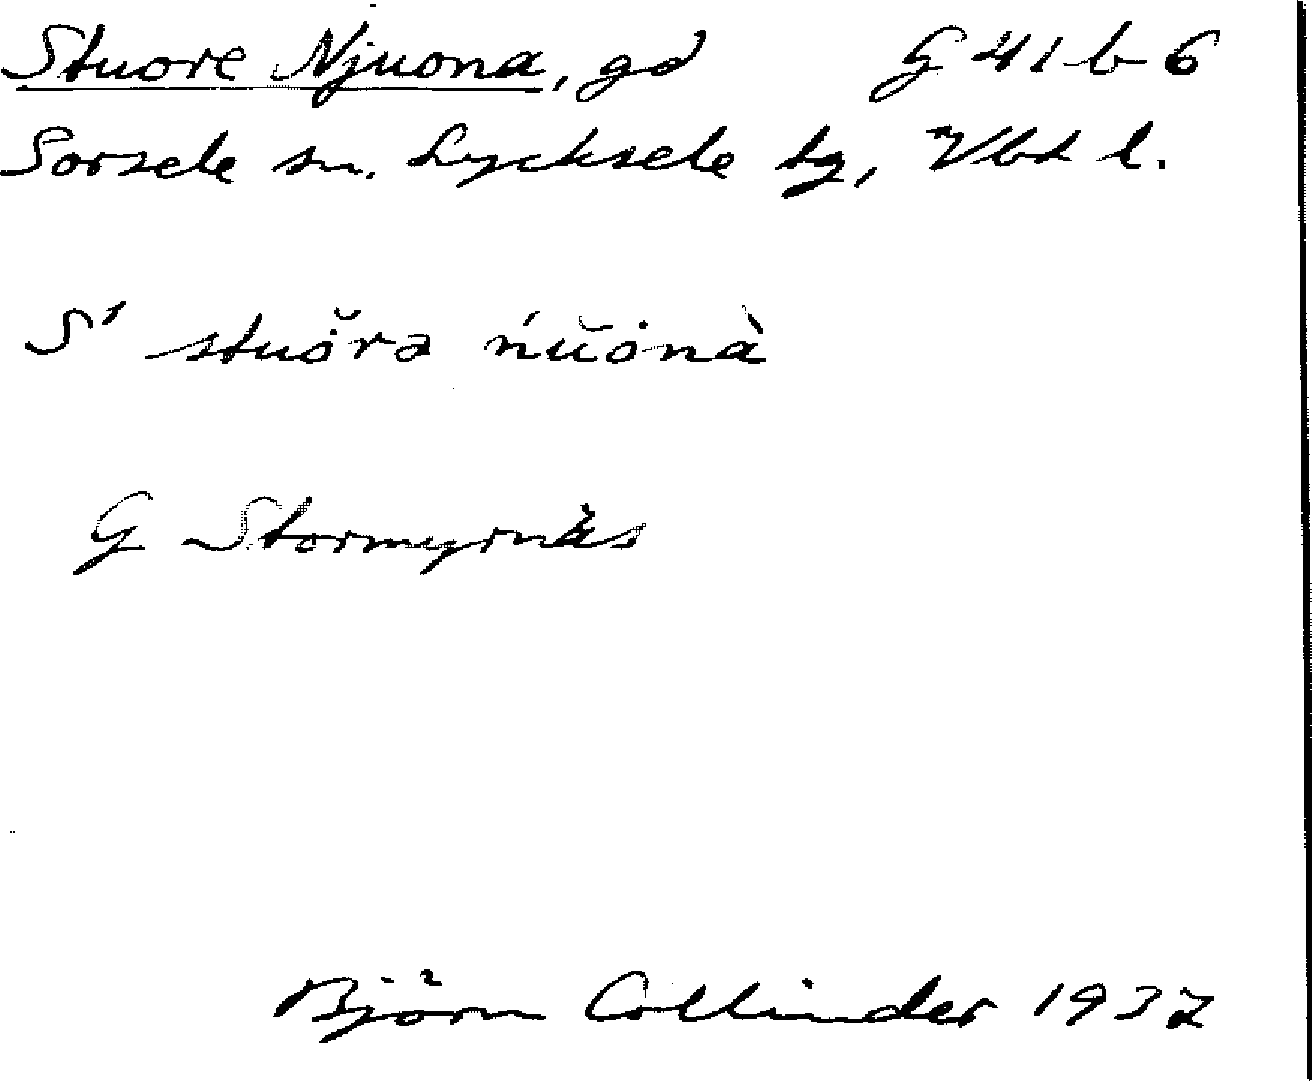 Stuore Njuona, gd G 41 b 6
Sorsele sn. Lycksele tg, Vbt l.
S' stuọ̆rə ńŭȯnȧ̀
G Stormyrnäs
Björn Collinder 1937